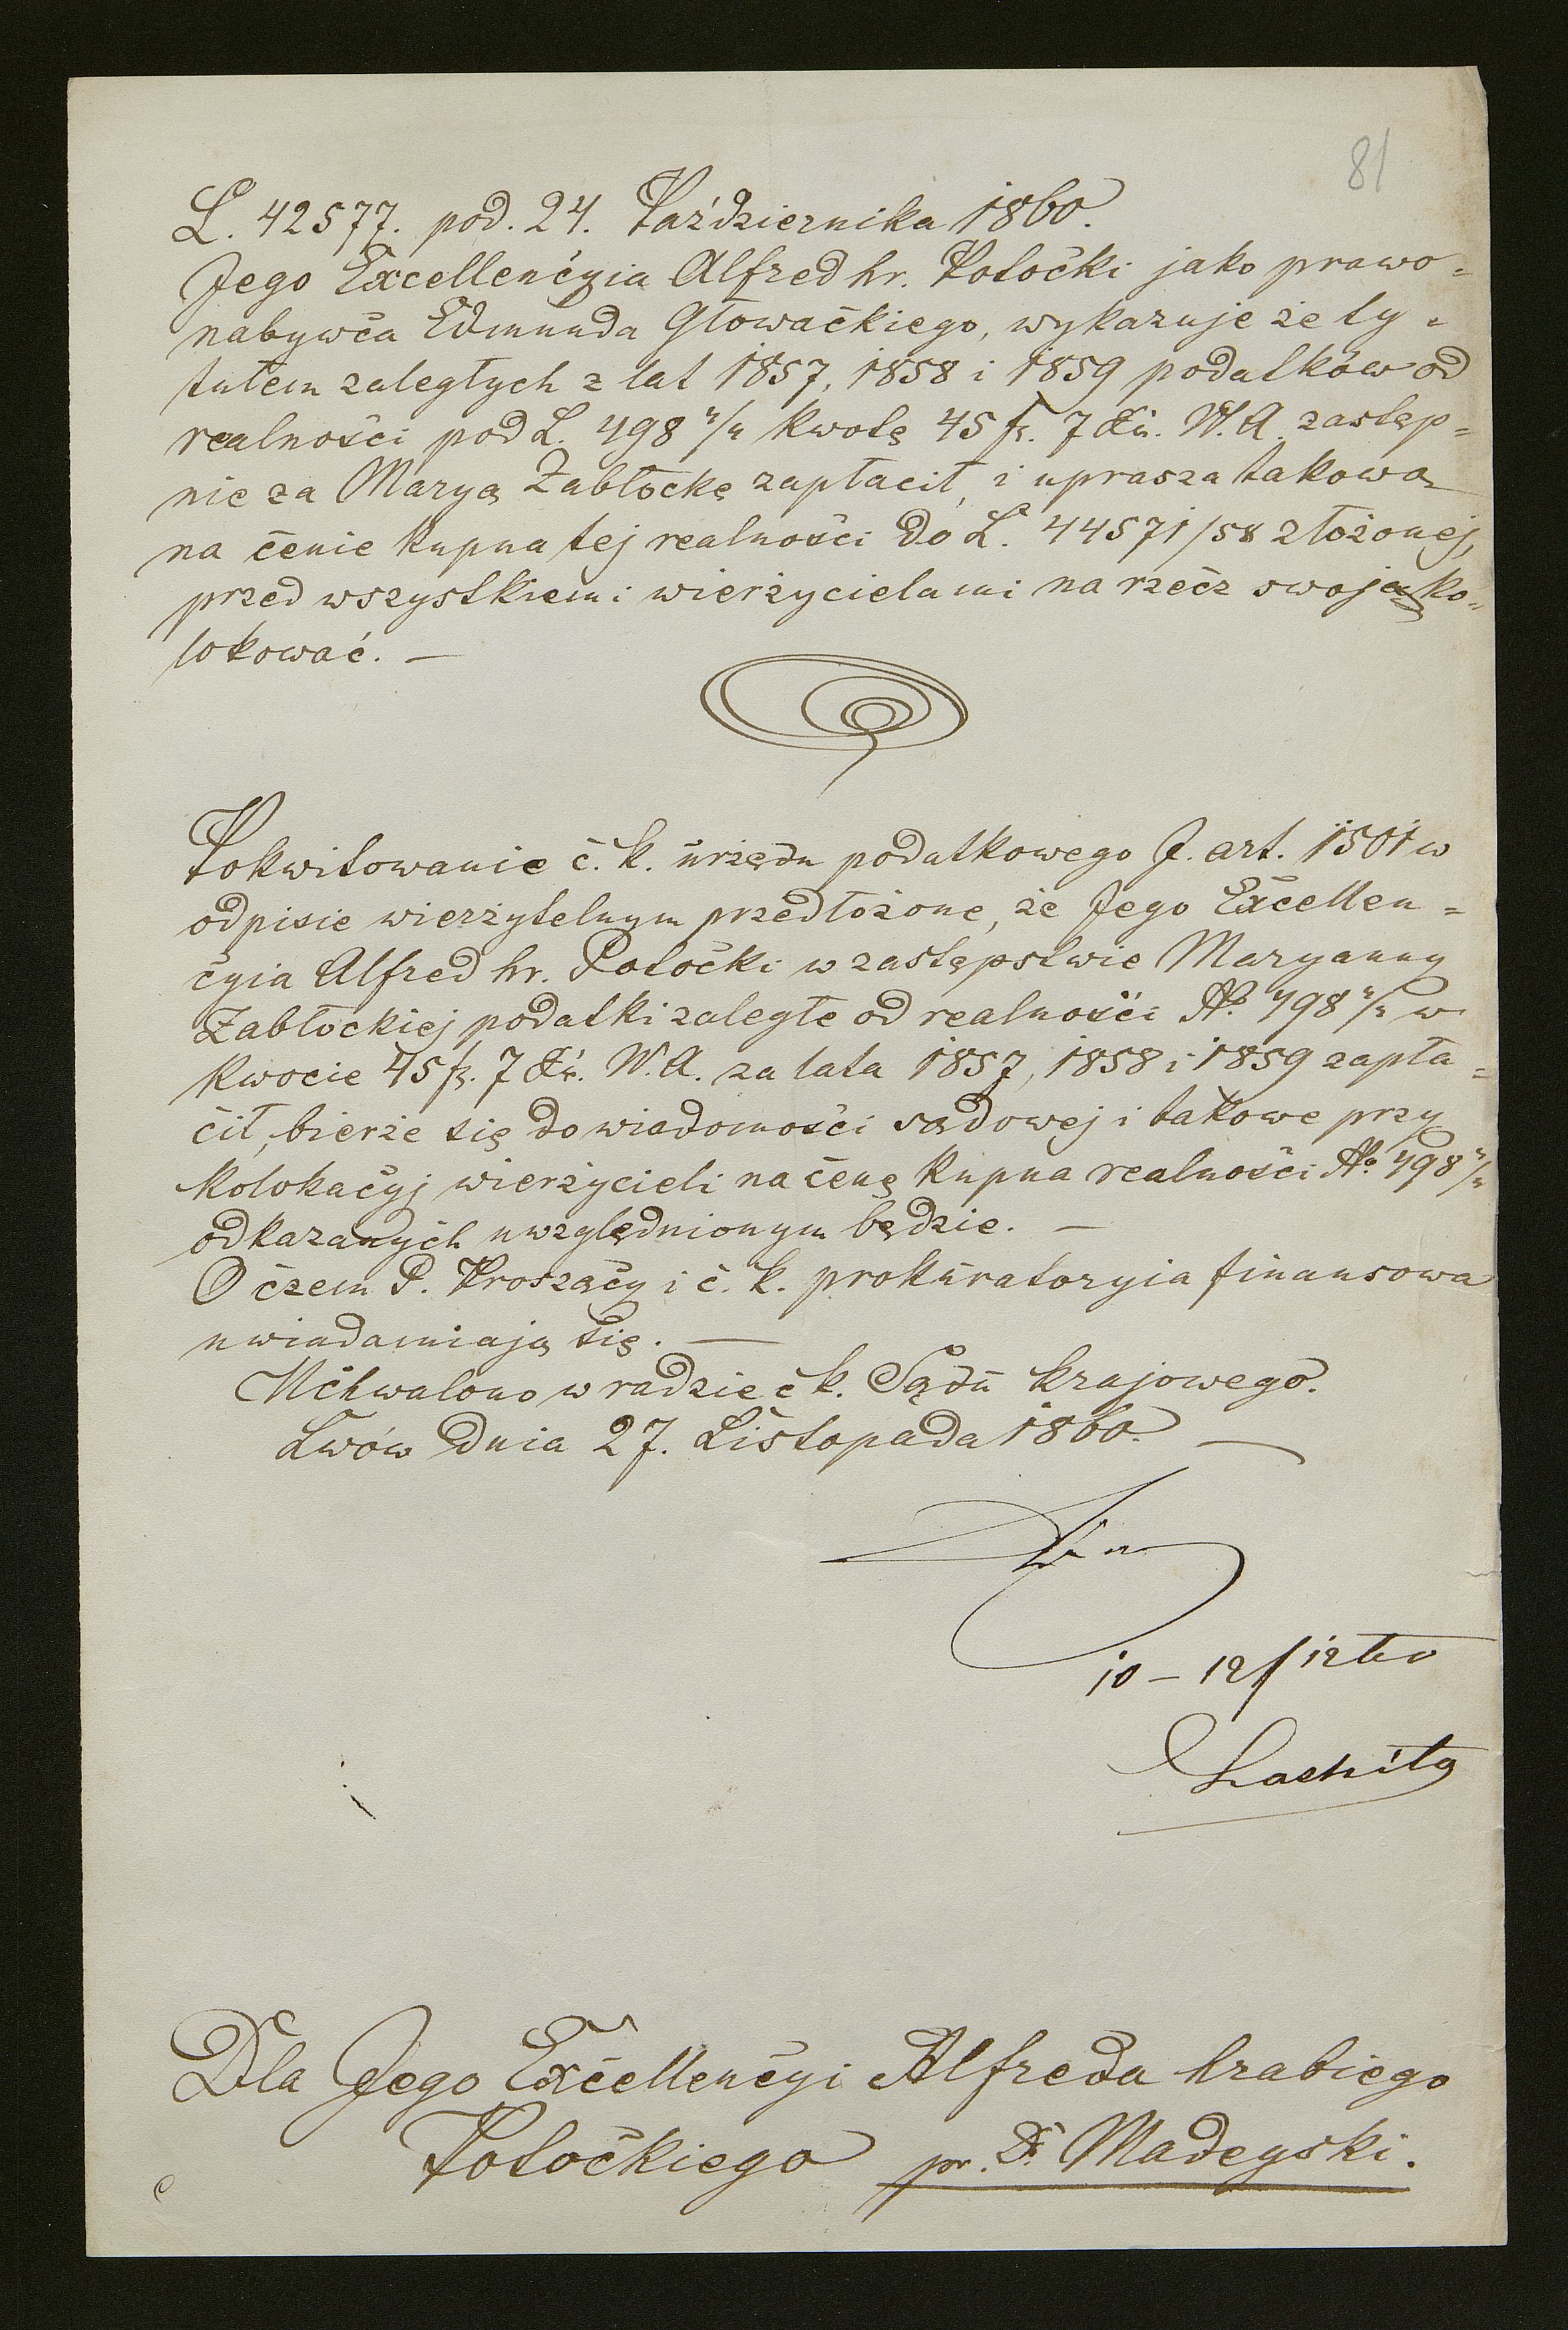 81
L. 42577. pod. 24. Października 1860.
Jego Excellencyia Alfred hr. Potocki jako prawo=
nabywca Edmunda Głowackiego, wykazuje że ty=
tułem zaległych z lat 1857, 1858 i 1859 podatków od
realności pod L. 498 4/4 kwotę 45 fr. 7 Kr. W. A. zastęp=
nie za Maryą Zabłockę zapłacił, i uprasza takową
na cenie kupna tej realności do L. 44571/58 złożonej,
przed wszystkiemi wierzycielami na rzecz swoją ko=
lokować. —
Pokwitowanie c. k. urzędu podatkowego J. art. 1501 w
odpisie wierzytelnym przedłożone, że Jego Excellen=
cyia Alfred hr. Potocki w zastępstwie Maryanny
Zabłockiej podatki zaległe od realności No. 498 4/4 w
kwocie 45 fr. 7 Kr. W. A. za lata 1857, 1858 i 1859 zapła=
cił, bierze się do wiadomości sądowej i takowe przy
kolokacyj wierzycieli na cenę kupna realności No 498 4/4
odkazanych uwzględnionym będzie. —
O czem P. Proszący i c. k. prokuratoryia finansowa
uwiadamiają się. —
Uchwalono w radzie c k. Sądu krajowego.
Lwów dnia 27. Listopada 1860. —
10 – 12/12
Dla Jego Excellencyi Alfreda hrabiego
Potockiego pr. Dr. Madeyski.